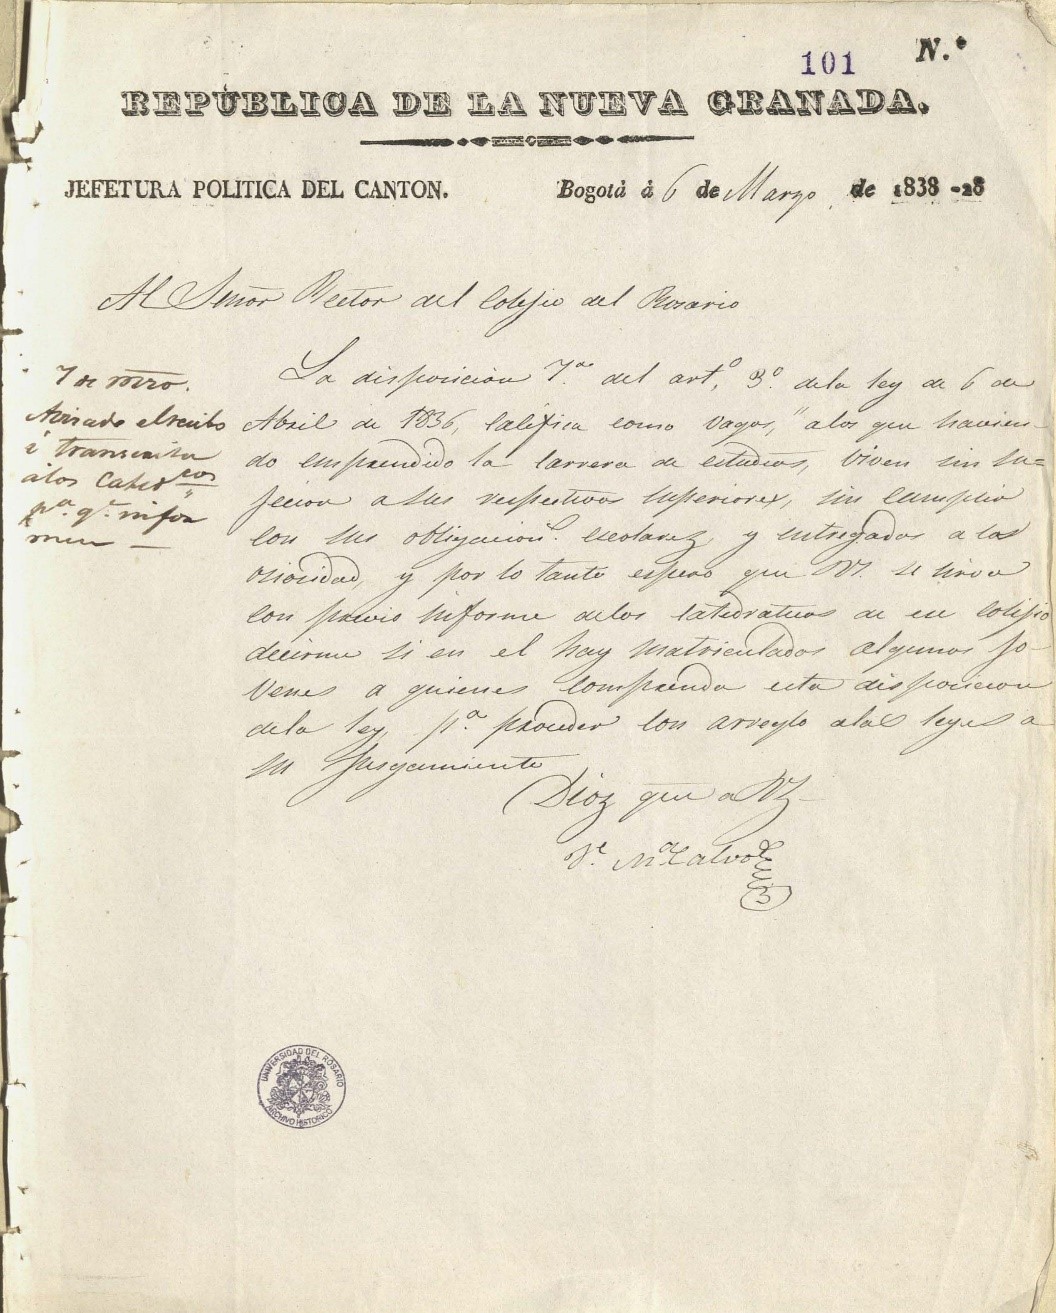 101 N.º
REPÚBLICA DE LA NUEVA GRANADA.
JEFETURA POLITICA DEL CANTON. Bogotá á 6 de Marzo de 1838 -28
Al Señor Rector del Colejio del Rosario
La disposicion 7.ª del artº. 3º. dela ley de 6 de
Abril de 1836, califica como vagos, "alos que havien-
do emprendido la carrera de estudios, viven sin su=
jecion a sus respectivos superiores, sin cumplir
con sus obligacion.s escolarez, y entregados a la
osiocidad, y por lo tanto espero que VS. se sirva
con previo informe delos catedraticos de ese Colejio
decirme si en el hay matriculados algunos jo-
venes a quienes comprenda esta disposicion
dela ley, p.ª proceder con arreglo alas leyes a
su jusgamiento
Dioz gue a VS
V.e M.ª Calvo
7 de
Avisado el recibo
i transcrita
álos Catedcos
p.ª q.e infor
men —
UNIVERSIDAD DEL ROSARIO
ARCHIVO HISTORICO